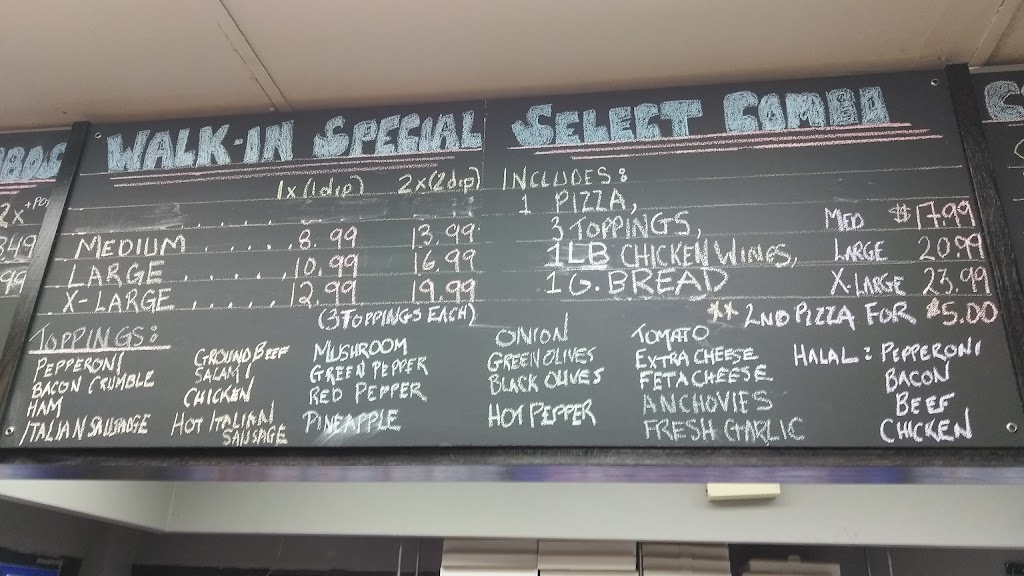 WALK-IN SPECIAL
1x (1 dip) 2x (2 dip)
MEDIUM ..... 8.99 13.99
LARGE ..... 10.99 16.99
X-LARGE ..... 12.99 19.99
(3 TOPPINGS EACH)
TOPPINGS:
PEPPERONI
BACON CRUMBLE
HAM
ITALIAN SAUSAGE
GROUND BEEF
SALAMI
CHICKEN
HOT ITALIAN
SAUSAGE
MUSHROOM
GREEN PEPPER
RED PEPPER
PINEAPPLE
ONION
GREEN OLIVES
BLACK OLIVES
HOT PEPPER
TOMATO
EXTRA CHEESE
FETA CHEESE
ANCHOVIES
FRESH GARLIC
SELECT COMBO
INCLUDES:
1 PIZZA,
3 TOPPINGS, MED $17.99
1LB CHICKEN WINGS, LARGE 20.99
1 G. BREAD X-LARGE 23.99
** 2ND PIZZA FOR $5.00
HALAL: PEPPERONI
BACON
BEEF
CHICKEN